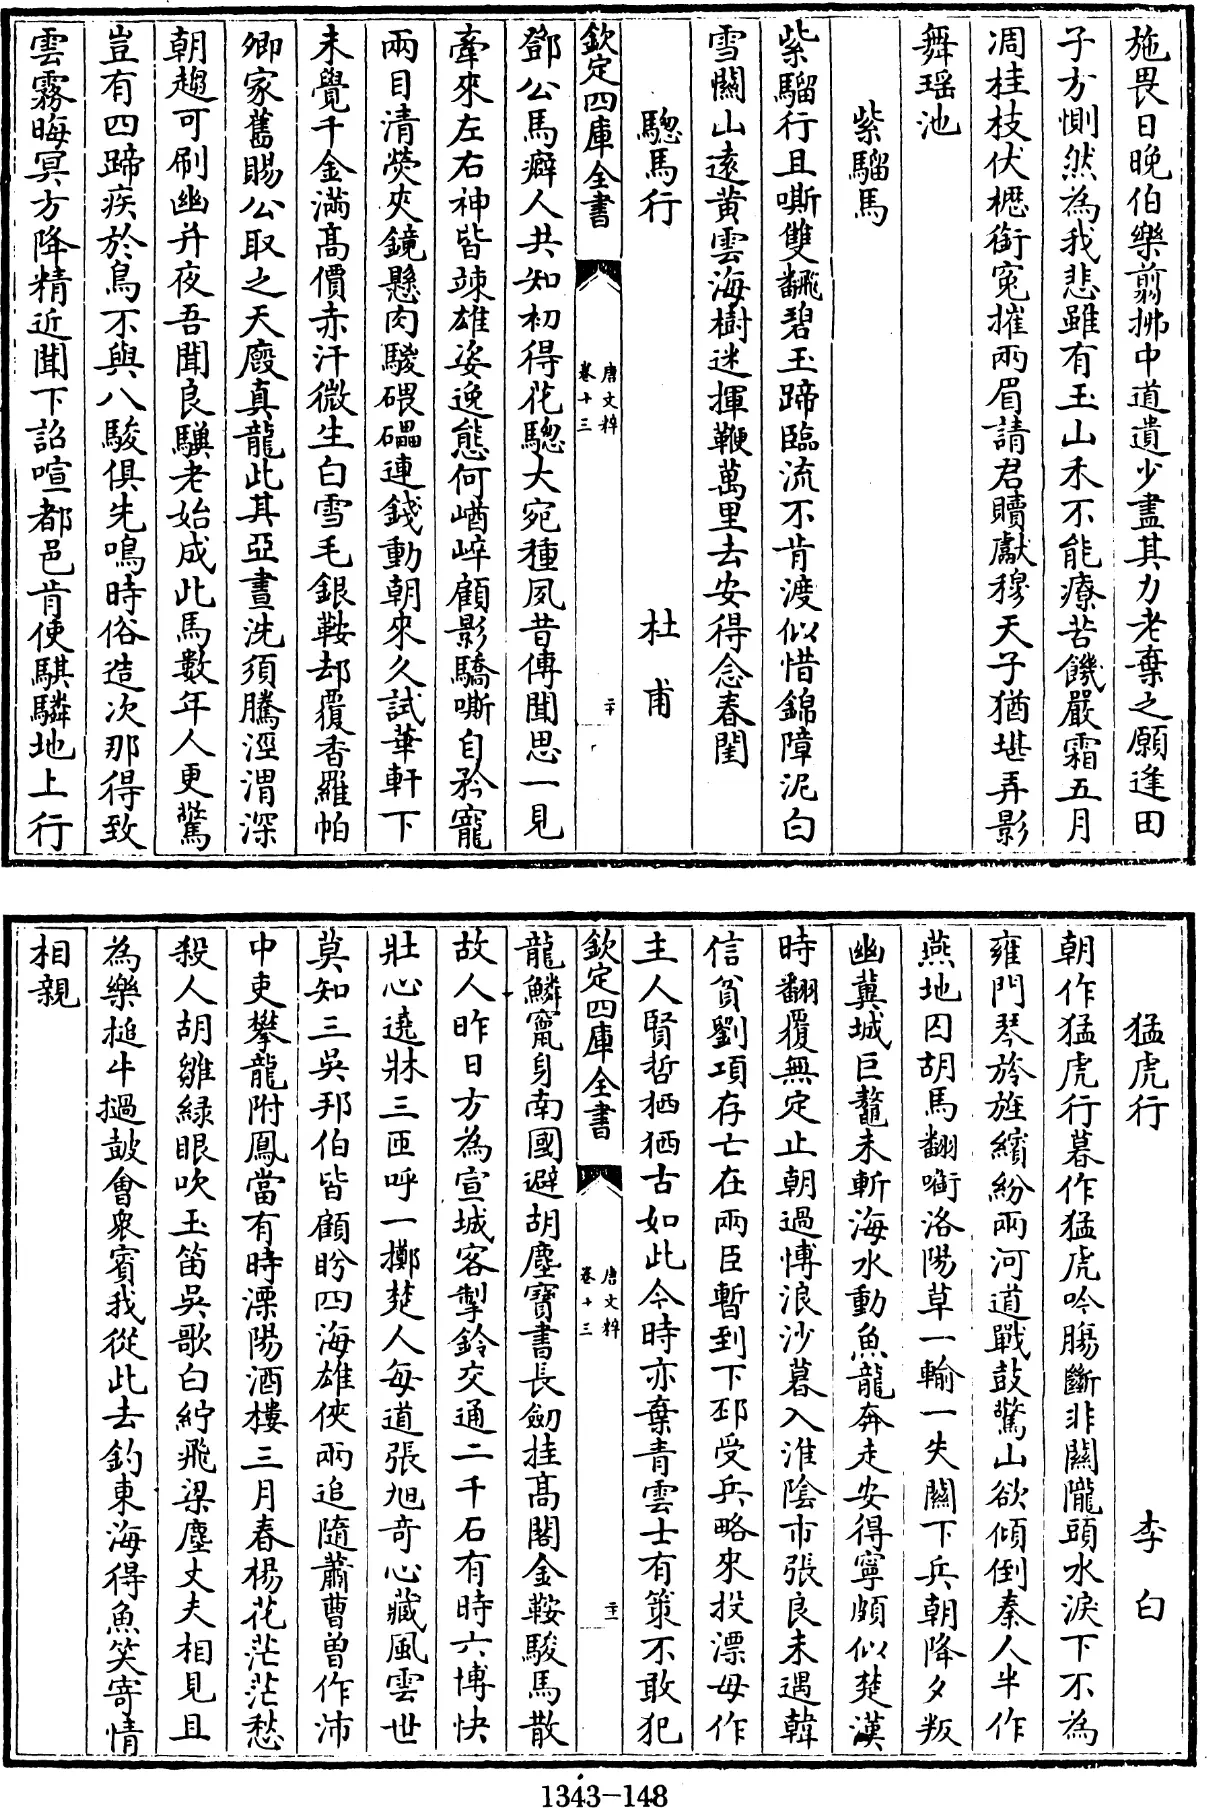 施畏日晚伯樂翦拂中道遺少盡其力老棄之願逢田
子方惻然為我悲雖有玉山禾不能療苦饑嚴霜五月
凋桂枝伏櫪銜寃摧兩眉請君贖獻穆天子猶堪弄影
舞瑶池
紫騮馬
紫騮行且嘶雙翻碧玉蹄臨流不肯渡似惜錦障泥白
雪關山遠黄雲海樹迷揮鞭萬里去安得念春閨
驄馬行 杜甫
欽定四庫全書 唐文粹 卷十三 二十
鄧公馬癖人共知初得花驄大宛種夙昔傳聞思一見
牽來左右神皆竦雄姿逸態何崷崒顧影驕嘶自矜寵
兩目清熒夾鏡懸肉騣碨礧連錢動朝來久試華軒下
未覺千金滿高價赤汗微生白雪毛銀鞍却覆香羅帕
卿家舊賜公取之天廏真龍此其亞晝洗須騰涇渭深
朝趨可刷幽并夜吾聞良驥老始成此馬數年人更驚
豈有四蹄疾於鳥不與八駿俱先鳴時俗造次那得致
雲霧晦冥方降精近聞下詔喧都邑肯使騏驎地上行
猛虎行 李白
朝作猛虎行暮作猛虎吟腸斷非關隴頭水淚下不為
雍門琴旍旌繽紛兩河道戰鼓驚山欲傾倒秦人半作
燕地囚胡馬翻銜洛陽草一輸一失關下兵朝降夕叛
幽冀城巨鼇未斬海水動魚龍奔走安得寧頗似楚漢
時翻覆無定止朝過博浪沙暮入淮陰市張良未遇韓
信貧劉項存亡在兩臣暫到下邳受兵略來投漂母作
主人賢哲栖栖古如此今時亦棄青雲士有策不敢犯
欽定四庫全書 唐文粹 卷十三 二十一
龍鱗竄身南國避胡塵寶書長劒挂高閣金鞍駿馬散
故人昨日方為宣城客掣鈴交通二千石有時六博快
壯心遶牀三匝呼一擲楚人每道張旭奇心藏風雲世
莫知三吳邦伯皆顧盼四海雄俠兩追隨蕭曹曾作沛
中吏攀龍附鳳當有時溧陽酒樓三月春楊花茫茫愁
殺人胡雛緑眼吹玉笛吳歌白紵飛梁塵丈夫相見且
為樂搥牛撾鼓會衆賓我從此去釣東海得魚笑寄情
相親
1343-148